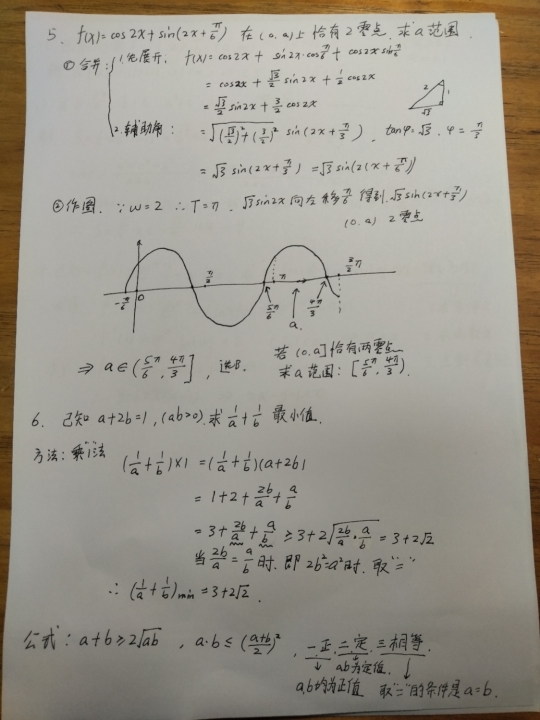 5. f(x)=cos2x+sin(2x+π/6) 在(0,a)上恰有2零点,求a范围.
①合并: 1.先展开. f(x)=cos2x+ sin2x·cosπ/6+ cos2x sinπ/6
= cos2x + √3/2 sin2x + 1/2 cos2x
= √3/2 sin2x + 3/2 cos2x
2 √3 1
2.辅助角: = √((√3/2)²+(3/2)²) sin(2x+π/3), tanφ=√3. φ=π/3
= √3 sin(2x+π/3) = √3 sin(2(x+π/6))
②作图. ∵ω=2 ∴T=π. √3sin2x向左移π/6得到 √3sin(2x+π/3)
(0,a) 2零点
-π/6 0 π/2 5π/6 π a 4π/3 3/2π
⇒ a∈(5π/6, 4π/3], 选B. 若(0,a]恰有两零点
求a范围: [5π/6, 4π/3).
6. 已知 a+2b=1, (ab>0). 求1/a+1/b 最小值.
方法: 乘"1"法 (1/a+1/b)×1 =(1/a+1/b)(a+2b)
= 1+2+2b/a+a/b
= 3+2b/a+a/b ≥3+2√(2b/a·a/b) = 3+2√2
当2b/a=a/b时. 即 2b²=a²时. 取"="
∴ (1/a+1/b)min =3+2√2.
公式: a+b≥2√ab , a·b≤(a+b/2)² , 一正.二定.三相等.
ab为定值.
a,b均为正值 取"="的条件是a=b.